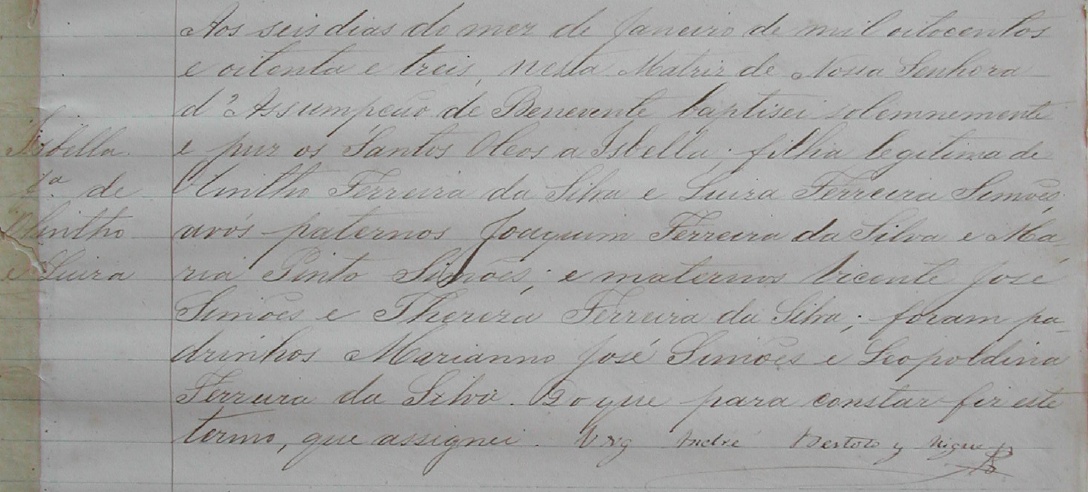 Aos seis dias do mez de Janeiro de mil oitocentos
e oitenta e treis, nesta Matriz de Nossa Senhora
d'Assumpção de Benevente baptisei solemnemente
Isbella e puz os Santos Oleos a Isbella, filha legitima de
fa. de Olintho Ferreira da Silva e Luiza Ferreira Simões
Olintho avós paternos Joaquim Ferreira da Silva e Ma-
e Luiza ria Pinto Simões; e maternos Vicente José
Simões e Thereza Ferreira da Silva; foram pa-
drinhos Marianno José Simões e Leopoldina
Ferreira da Silva. Do que para constar fiz este
termo, que assignei. Vig André